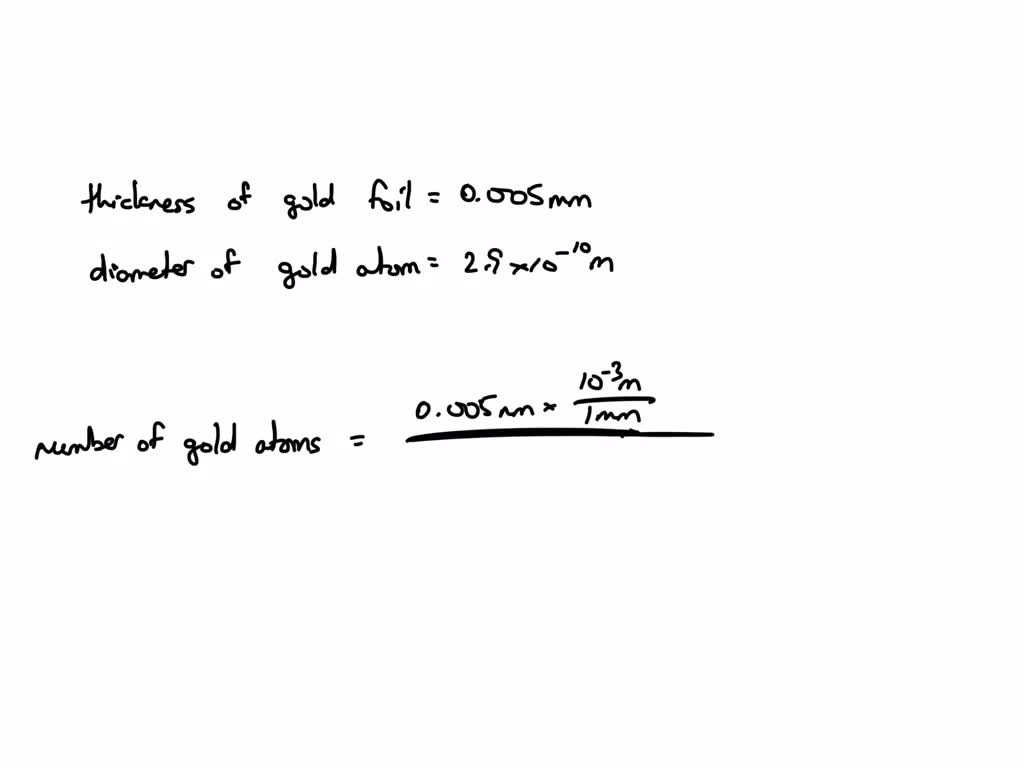 thickness of gold foil = 0.005mm
diameter of gold atom = 2.9 × 10⁻¹⁰ m
number of gold atoms = 0.005mm × 10⁻³m / 1mm